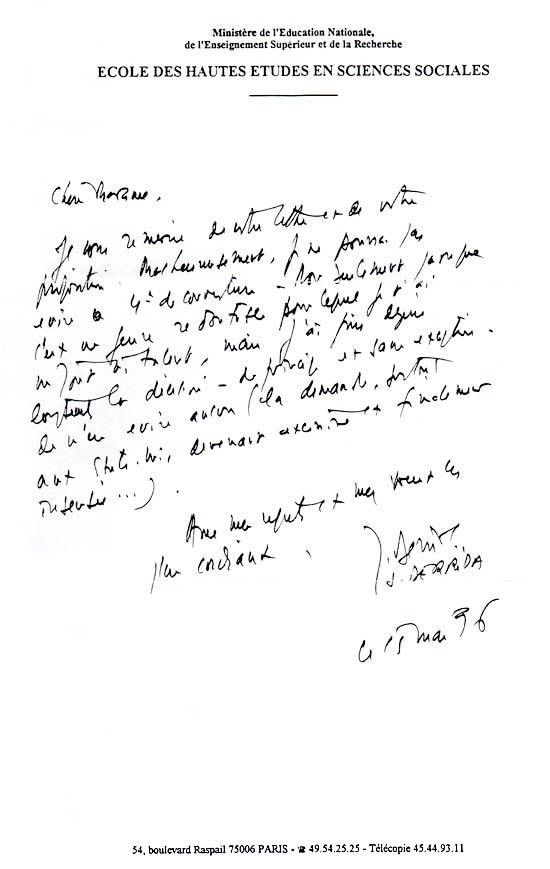 Ministère de l'Education Nationale,
de l'Enseignement Supérieur et de la Recherche
ECOLE DES HAUTES ETUDES EN SCIENCES SOCIALES
Je vous remercie de votre lettre et de votre
proposition. Malheureusement, je ne pourrai pas
écrire la 4e de couverture - Non seulement parce que
c'est un genre redoutable pour lequel je n'ai
ni goût ni talent, mais j'ai pris depuis
longtemps la décision - de principe et sans exception -
de n'en écrire aucun (la demande, surtout
aux Etats-Unis, devenait excessive et finalement
insensée ...).
Avec mes regrets et mes voeux les
plus cordiaux,
J. DERRIDA
le 15 mai 96
54, boulevard Raspail 75006 PARIS - ☎ 49.54.25.25 - Télécopie 45.44.93.11